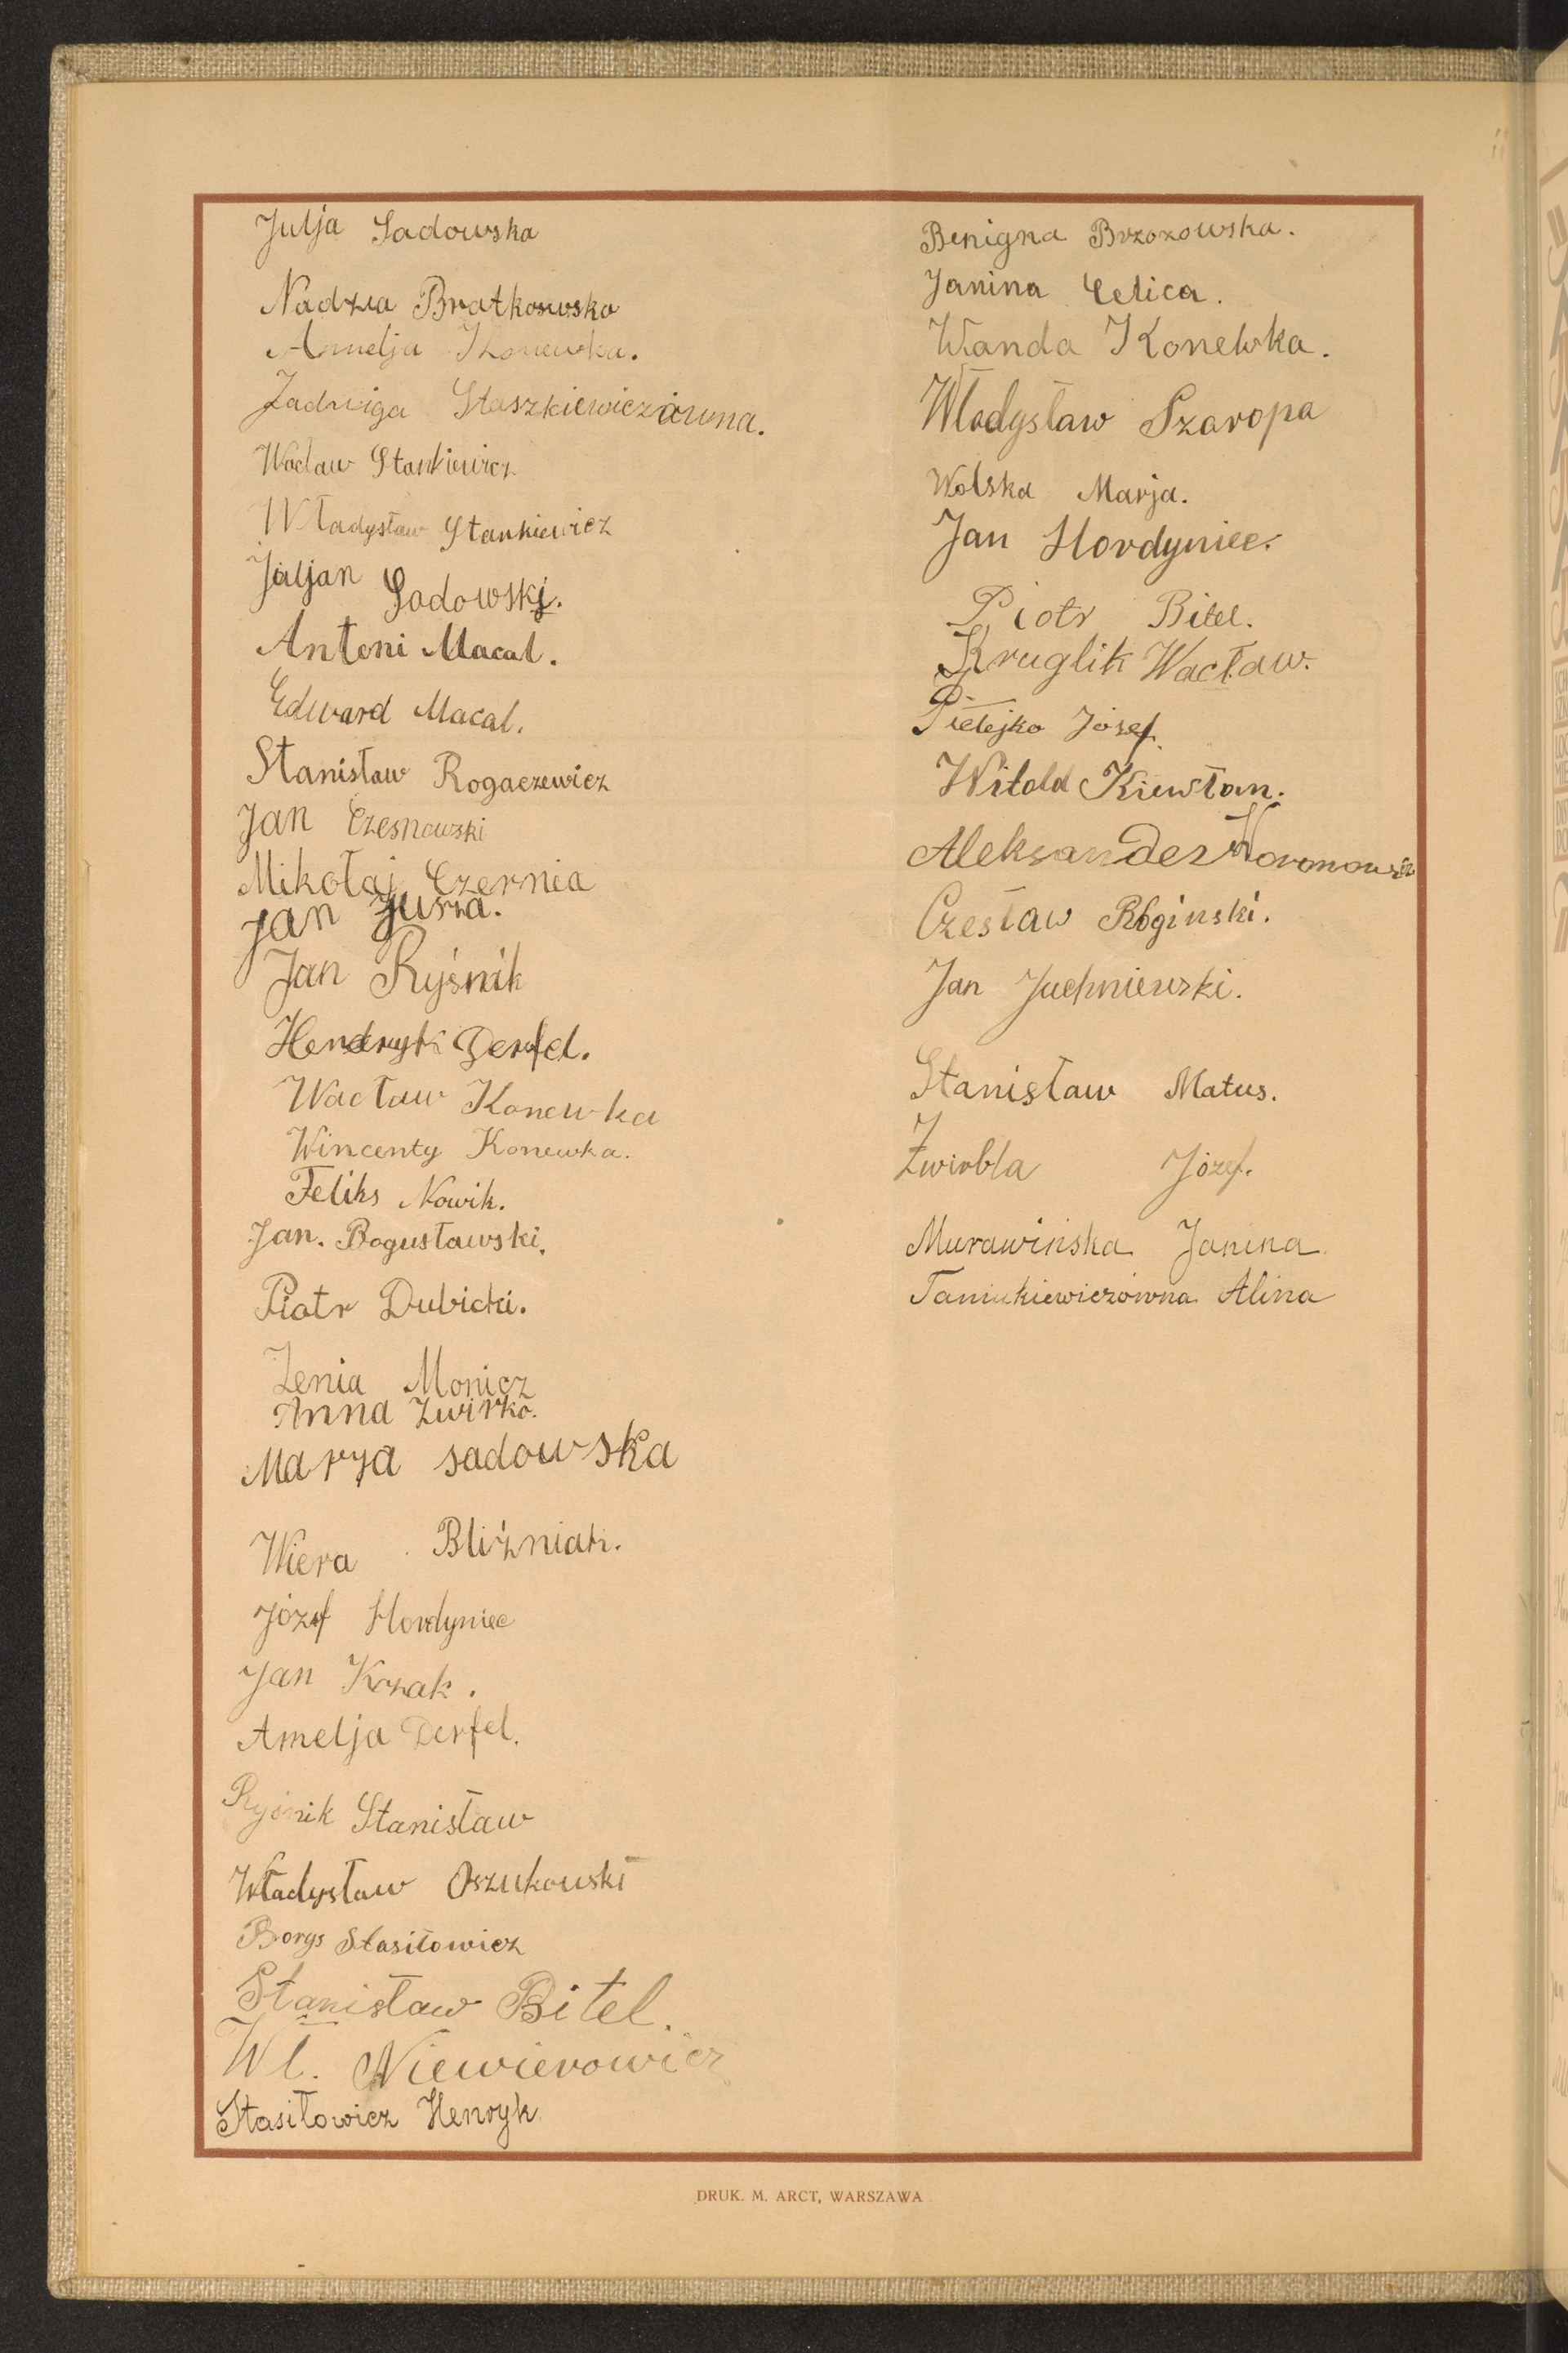 Julja Sadowska
Nadzia Bratkowska
Amelja Konewka.
Jadwiga Staszkiewiczówna.
Wacław Stankiewicz
Władysław Stankiewicz
Juljan Sadowski.
Antoni Macal.
Edward Macal.
Stanisław Rogaczewicz
Jan Czesnowski
Mikołaj Czernia
Jan Żurna.
Jan Ryśnik
Hendryk Derfel.
Wacław Konewka
Wincenty Konewka.
Feliks Nowik.
Jan. Bogusławski.
Piotr Dubicki.
Zenia Monicz
Anna Żwirko.
Marya sadowska
Wiera Bliźniak.
Józef Hordyniec
Jan Krzak.
Amelja Derfel.
Ryśnik Stanisław
Władysław Oszukowski
Borys Stasiłowicz
Stanisław Bitel.
Wł. Niewierowicz
Stasiłowicz Henryk
Benigna Brzozowska.
Janina Celica.
Wanda Konewka.
Władysław Szaropa
Wolska Marja.
Jan Hordyniec.
Piotr Bitel.
Kruglik Wacław.
Pietejko Józef.
Witold Kiewłan.
Aleksander
Czesław Roginski.
Jan Juchniewski.
Stanisław Matus.
Żwirbla Józef.
Murawińska Janina
Taniukiewiczówna Alina
DRUK. M. ARCT, WARSZAWA